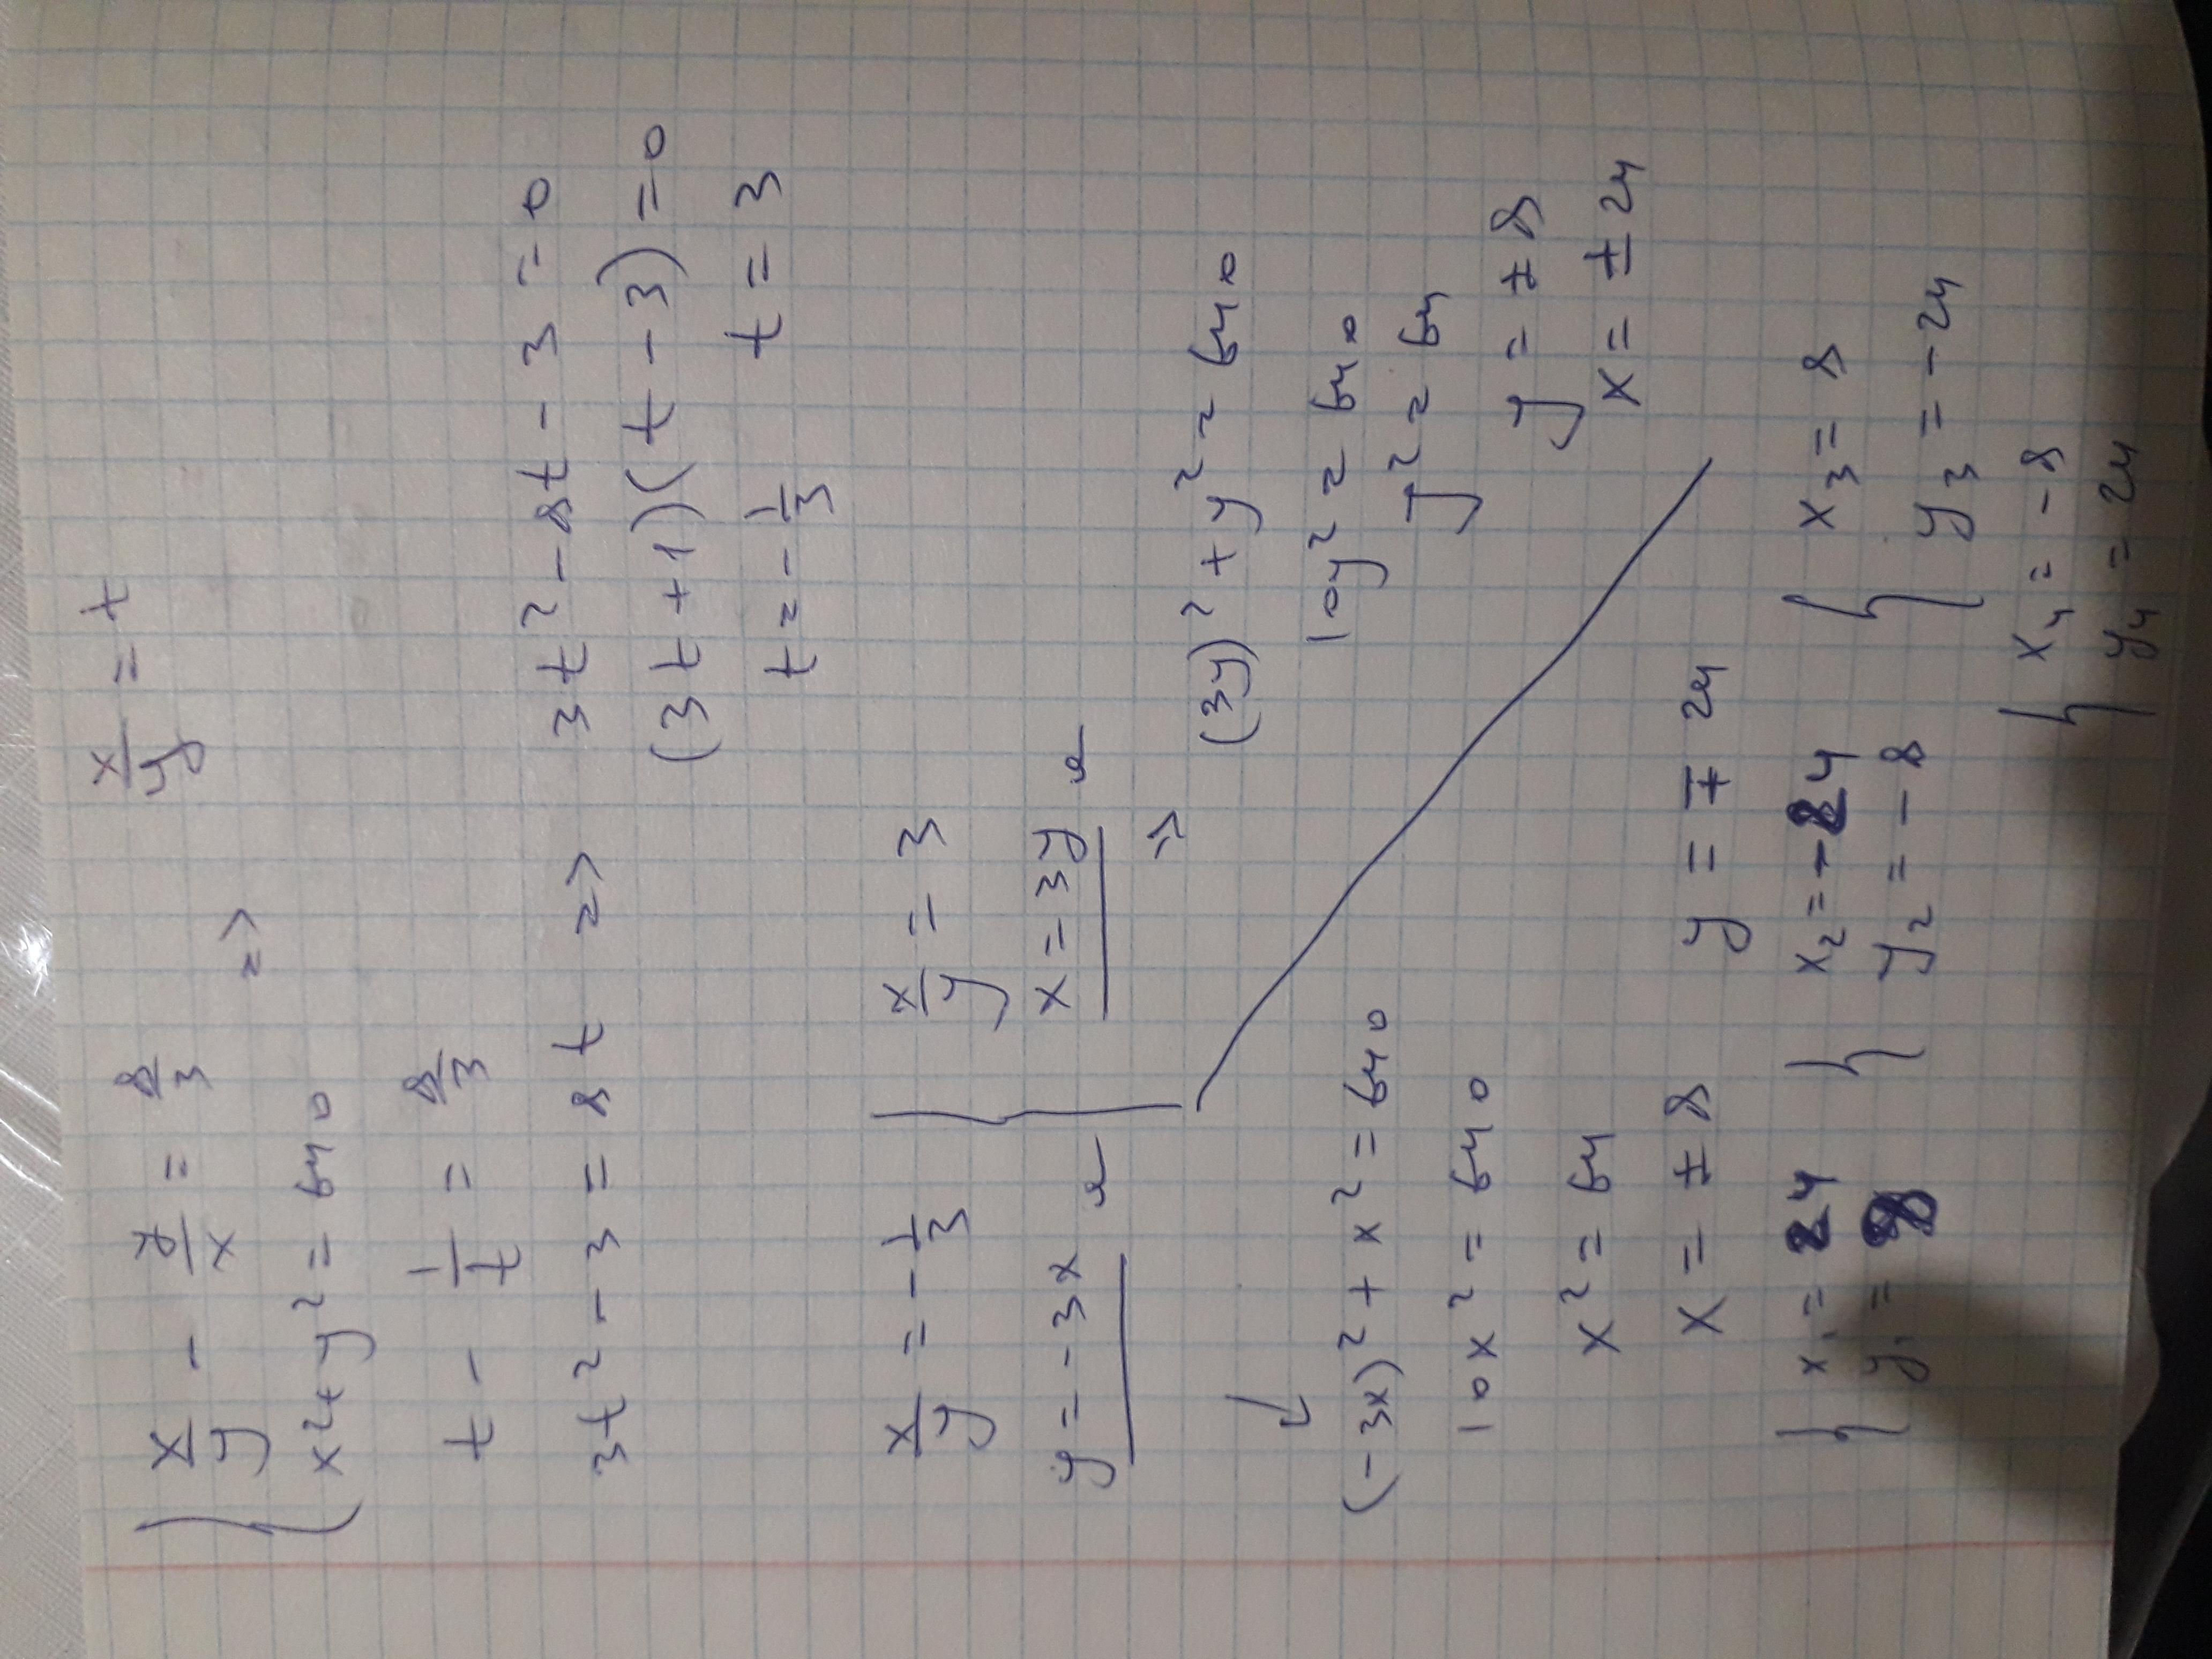 { x/y - y/x = 8/3 => x/y = t
x² + y² = 640
t - 1/t = 8/3
3t² - 3 = 8t => 3t² - 8t - 3 = 0
(3t + 1)(t - 3) = 0
t = -1/3 t = 3
x/y = -1/3 x/y = 3
y = -3x x = 3y
↓ =>
(-3x)² + x² = 640 (3y)² + y² = 640
10x² = 640 10y² = 640
x² = 64 y² = 64
x = ±8 y = ±8
y = ∓24 x = ±24
{ x₁ = 24 { x₂ = -24 { x₃ = 8
y₁ = 8 y₂ = -8 y₃ = -24
{ x₄ = -8
y₄ = 24